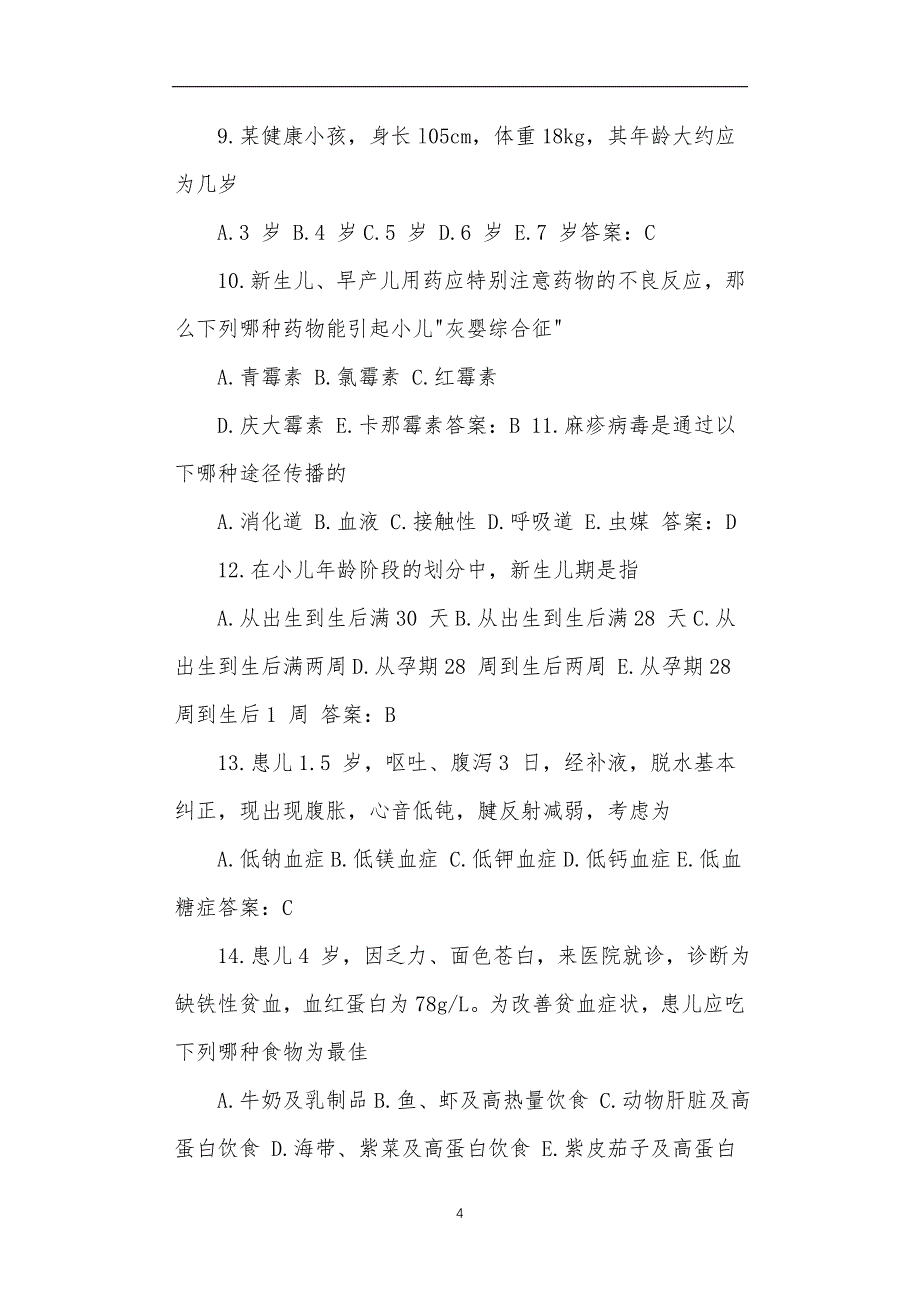 9.某健康小孩，身长l05cm，体重18kg，其年龄大约应
为几岁
A.3 岁 B.4 岁C.5 岁 D.6 岁 E.7 岁答案：C
10.新生儿、早产儿用药应特别注意药物的不良反应，那
么下列哪种药物能引起小儿"灰婴综合征"
A.青霉素 B.氯霉素 C.红霉素
D.庆大霉素 E.卡那霉素答案：B 11.麻疹病毒是通过以
下哪种途径传播的
A.消化道 B.血液 C.接触性 D.呼吸道 E.虫媒 答案：D
12.在小儿年龄阶段的划分中，新生儿期是指
A.从出生到生后满30 天B.从出生到生后满28 天C.从
出生到生后满两周D.从孕期28 周到生后两周 E.从孕期28
周到生后1 周 答案：B
13.患儿1.5 岁，呕吐、腹泻3 日，经补液，脱水基本
纠正，现出现腹胀，心音低钝，腱反射减弱，考虑为
A.低钠血症B.低镁血症 C.低钾血症D.低钙血症E.低血
糖症答案：C
14.患儿4 岁，因乏力、面色苍白，来医院就诊，诊断为
缺铁性贫血，血红蛋白为78g/L。为改善贫血症状，患儿应吃
下列哪种食物为最佳
A.牛奶及乳制品B.鱼、虾及高热量饮食 C.动物肝脏及高
蛋白饮食 D.海带、紫菜及高蛋白饮食 E.紫皮茄子及高蛋白
4